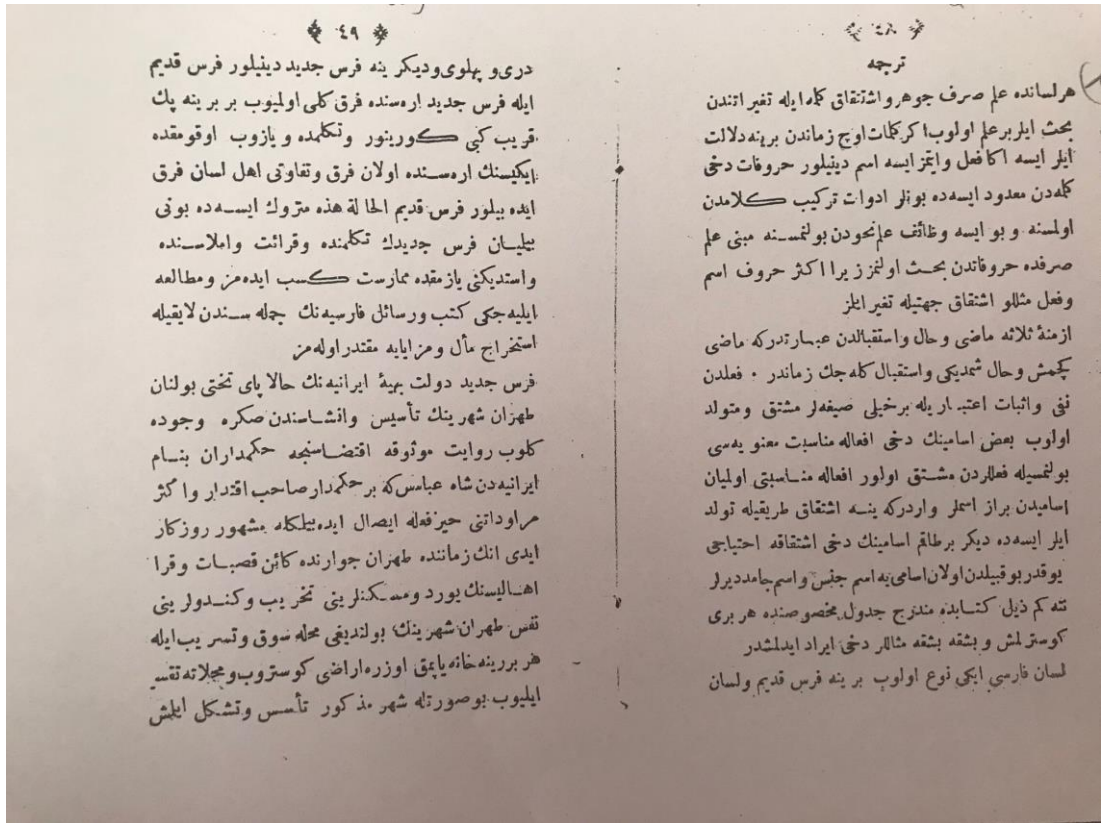 ﴿ ٤٨ ﴾
ترجمه
هر لسانده علم صرف جوهر و اشتقاق كله ايله تغير اتندن
بحث ايلر بر علم اولوب اكر كلمات اوچ زماندن برينه دلالت
ايلر ايسه اكا فعل و ايتمز ايسه اسم دينيلور حروفات دخى
كله دن معدود ايسه ده بونلر ادوات تركيب كلامدن
اولمسنه و بو ايسه وظائف علم نحودن بولنمسنه مبنى علم
صرفده حروفاتدن بحث اولنمز زيرا اكثر حروف اسم
وفعل مثللو اشتقاق جهتيله تغير ايلمز
ازمنهٔ ثلاثه ماضى و حال و استقبالدن عبارتدركه ماضى
كچمش و حال شمديكى و استقبال كله جك زماندر ٠ فعلدن
نفى و اثبات اعتباريله برخيلى صيغه لر مشتق و متولد
اولوب بعض اسامينك دخى افعاله مناسبت معنويه سى
بولنمسيله فعللردن مشتق اولور افعاله مناسبتى اولميان
اساميدن براز اسملر واردركه ينه اشتقاق طريقيله تولد
ايلر ايسه ده ديكر برطاقم اسامينك دخى اشتقاقه احتياجى
يوقدر بو قبيلدن اولان اسامى به اسم جنس و اسم جامد ديرلر
نته كم ذيل كتابده مندرج جدول مخصوصنده هر برى
كوسترلمش و بشقه بشقه مثاللر دخى ايراد ايدلمشدر
لسان فارسى ايكى نوع اولوب برينه فرس قديم و لسان
﴿ ٤٩ ﴾
درى و پهلوى و ديكرينه فرس جديد دينيلور فرس قديم
ايله فرس جديد اره سنده فرق كلى اولميوب بر برينه پك
قريب كبى كورينور و تكلمده و يازوب اوقومقده
ايكيسنك اره سنده اولان فرق و تفاوتى اهل لسان فرق
ايده بيلور فرس قديم الحالة هذه متروك ايسه ده بونى
بيليان فرس جديدك تكلمنده و قرائت و املاسنده
و استديكنى يازمقده ممارست كسب ايده مز و مطالعه
ايليه جكى كتب و رسائل فارسيه نك جمله سندن لايقيله
استخراج مأل و مزايايه مقتدر اوله مز
فرس جديد دولت بهيهٔ ايرانيه نك حالا پاى تختى بولنان
طهران شهرينك تأسيس و انشاسندن صكره وجوده
كلوب روايت موثوقه اقتضاسنجه حكمداران بنام
ايرانيه دن شاه عباس كه بر حكمدار صاحب اقتدار و اكثر
مراوداتنى حيز فعله ايصال ايده بيلمكله مشهور روزكار
ايدى انك زماننده طهران جوارنده كائن قصبات و قرا
اهاليسنك يورد و مسكنلرينى تخريب و كندولرينى
نفس طهران شهرينك بولنديغى محله سوق و تسريب ايله
هر بررينه خانه ياپمق اوزره اراضى كوستروب و محلاته تقسـ
ايليوب بو صورتله شهر مذكور تأسس و تشكل ايلمش